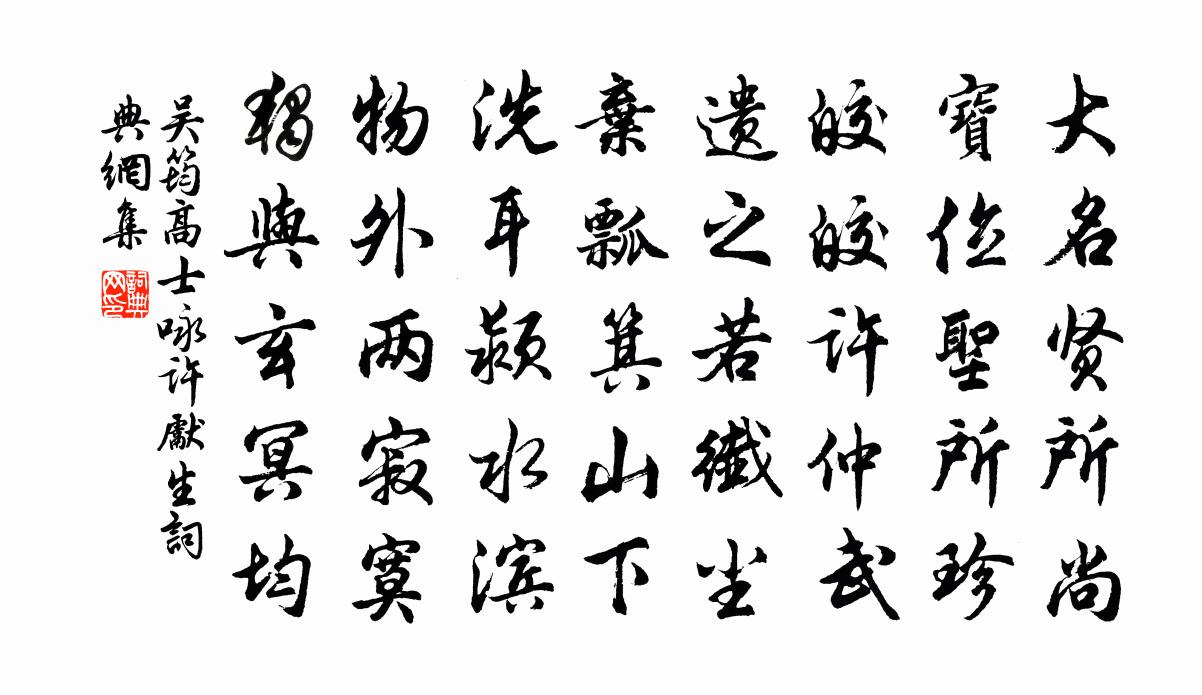 大名贤所尚
寶位聖所珍
皎皎許仲武
遗之若纖尘
棄瓢箕山下
洗耳颍水滨
物外两寂寞
獨與玄冥均
吴筠高士咏許獻生詞
典網集
詞典
网印